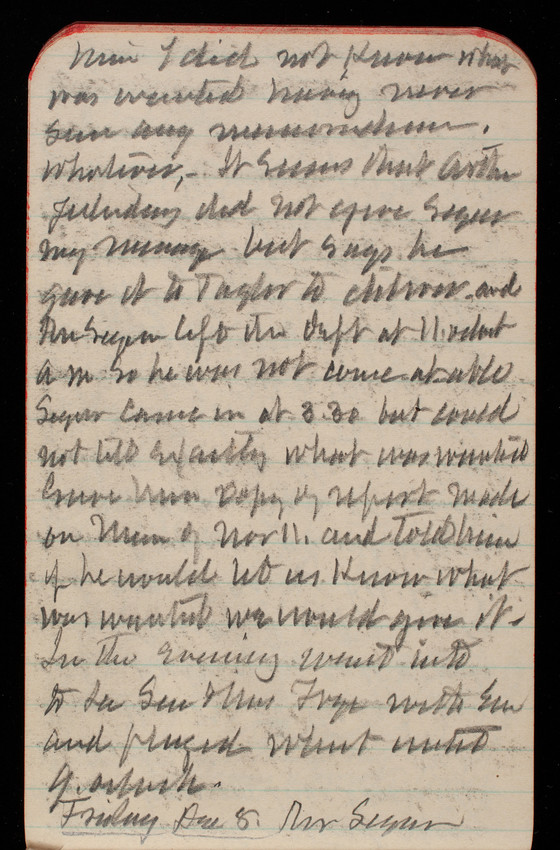 him I did not know what
was wanted having never
seen any memorandum
whatever,- It seems that
did not give Segur
my message but says he
gave it to Taylor to deliver and
Mr Segur left the Dept at 11. oclock
a m so he was not come-at-able
Segur came in at 3.30 but could
not tell exactly what was wanted
Gave him copy of report made
on Mem of Nov 11. and told him
if he would let us know what
was wanted we would give it-
In the evening went into
to see Gen & Mrs with Em
and played whist until
9. oclock.
Friday Dec 8. Mr Segur